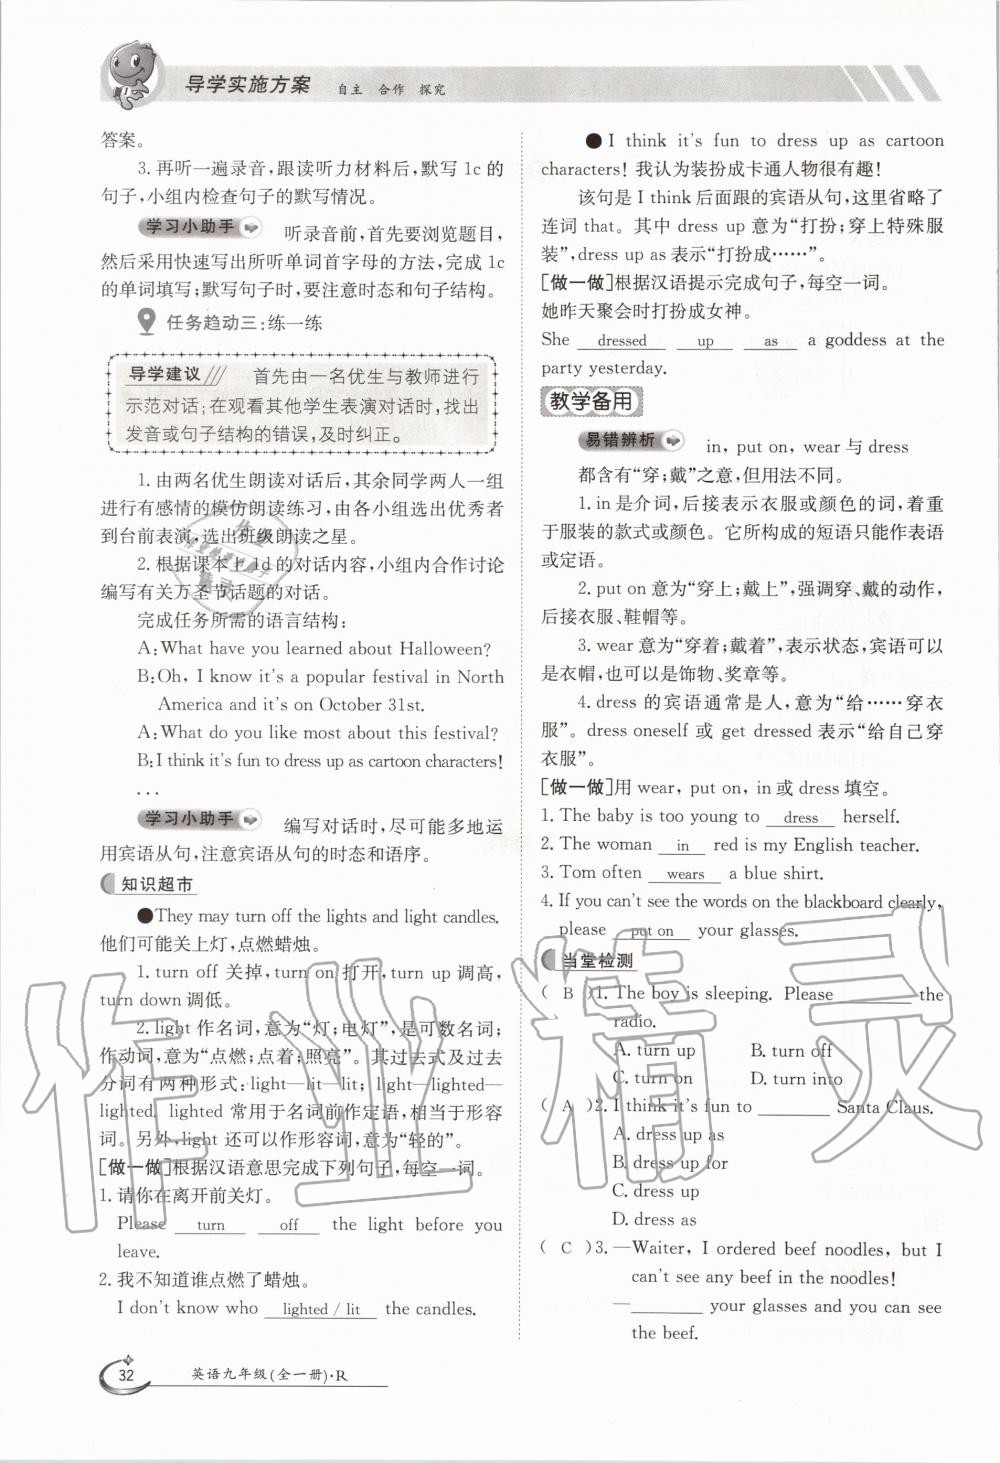 导学实施方案 自主 合作 探究
答案。
3.再听一遍录音,跟读听力材料后,默写1c的
句子,小组内检查句子的默写情况。
学习小助手 听录音前,首先要浏览题目,
然后采用快速写出所听单词首字母的方法,完成1c
的单词填写;默写句子时,要注意时态和句子结构。
任务趋动三:练一练
导学建议 首先由一名优生与教师进行
示范对话;在观看其他学生表演对话时,找出
发音或句子结构的错误,及时纠正。
1.由两名优生朗读对话后,其余同学两人一组
进行有感情的模仿朗读练习,由各小组选出优秀者
到台前表演,选出班级朗读之星。
2.根据课本上1d的对话内容,小组内合作讨论
编写有关万圣节话题的对话。
完成任务所需的语言结构:
A:What have you learned about Halloween?
B:Oh, I know it's a popular festival in North
America and it's on October 31st.
A:What do you like most about this festival?
B:I think it's fun to dress up as cartoon characters!
...
学习小助手 编写对话时,尽可能多地运
用宾语从句,注意宾语从句的时态和语序。
知识超市
●They may turn off the lights and light candles.
他们可能关上灯,点燃蜡烛。
1.turn off 关掉,turn on 打开,turn up 调高,
turn down 调低。
2.light 作名词,意为“灯;电灯”,是可数名词;
作动词,意为“点燃;点着;照亮”。其过去式及过去
分词有两种形式:light—lit—lit;light—lighted—
lighted. lighted 常用于名词前作定语,相当于形容
词。另外,light 还可以作形容词,意为“轻的”。
[做一做]根据汉语意思完成下列句子,每空一词。
1.请你在离开前关灯。
Please turn off the light before you
leave.
2.我不知道谁点燃了蜡烛。
I don't know who lighted / lit the candles.
●I think it's fun to dress up as cartoon
characters! 我认为装扮成卡通人物很有趣!
该句是 I think 后面跟的宾语从句,这里省略了
连词 that。其中 dress up 意为“打扮;穿上特殊服
装”,dress up as表示“打扮成……”。
[做一做]根据汉语提示完成句子,每空一词。
她昨天聚会时打扮成女神。
She dressed up as a goddess at the
party yesterday.
教学备用
易错辨析 in, put on, wear 与 dress
都含有“穿;戴”之意,但用法不同。
1.in是介词,后接表示衣服或颜色的词,着重
于服装的款式或颜色。它所构成的短语只能作表语
或定语。
2.put on 意为“穿上;戴上”,强调穿、戴的动作,
后接衣服、鞋帽等。
3.wear 意为“穿着;戴着”,表示状态,宾语可以
是衣帽,也可以是饰物、奖章等。
4.dress 的宾语通常是人,意为“给……穿衣
服”。dress oneself 或 get dressed 表示“给自己穿
衣服”。
[做一做]用 wear, put on, in或 dress 填空。
1. The baby is too young to dress herself.
2. The woman in red is my English teacher.
3. Tom often wears a blue shirt.
4. If you can't see the words on the blackboard clearly,
please put on your glasses.
当堂检测
( B )1. The boy is sleeping. Please ______ the
radio.
A. turn up B. turn off
C. turn on D. turn into
( A )2. I think it's fun to ______ Santa Claus.
A. dress up as
B. dress up for
C. dress up
D. dress as
( C )3. —Waiter, I ordered beef noodles, but I
can't see any beef in the noodles!
—______ your glasses and you can see
the beef.
32 英语九年级(全一册)·R
作业精灵